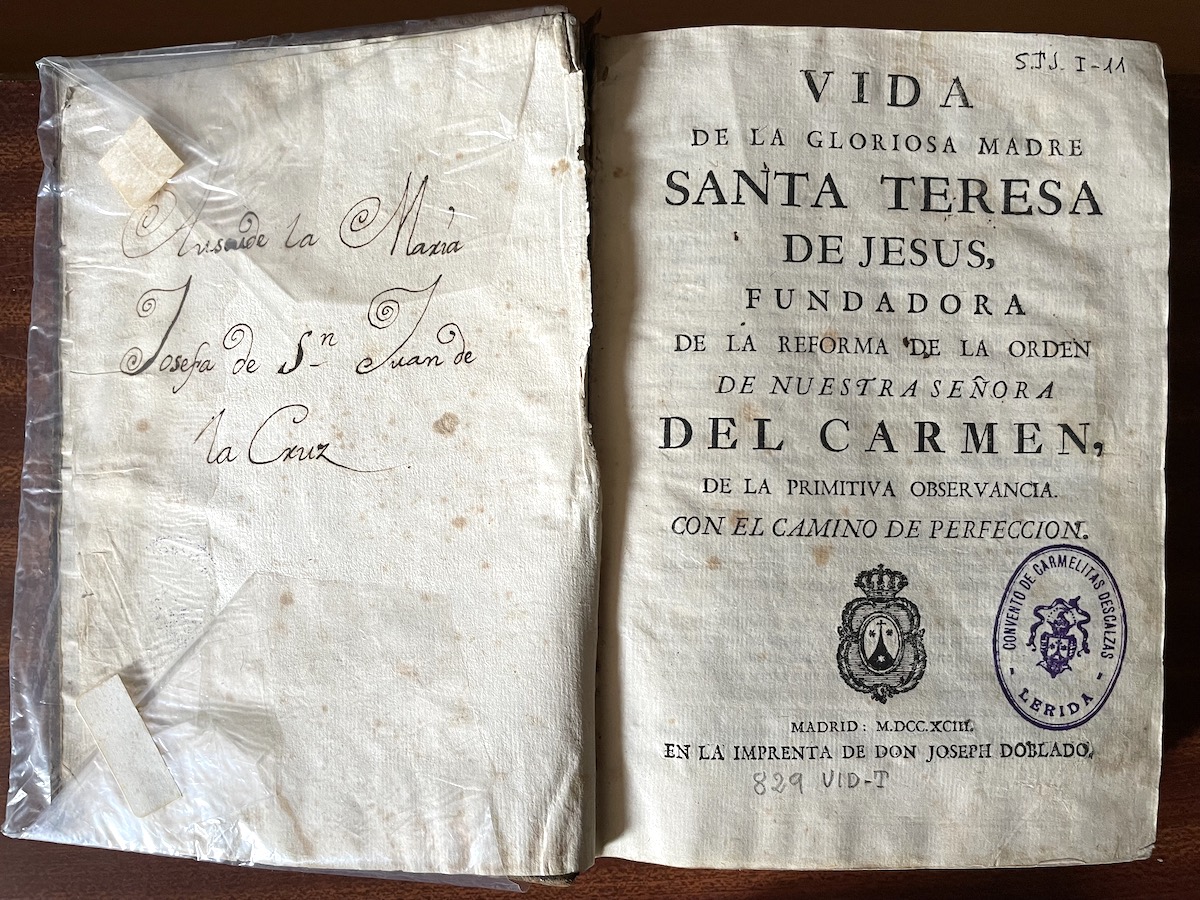 de la María
Josefa de Sn Juan de
la Cruz
S.T.J. I-11
VIDA
DE LA GLORIOSA MADRE
SANTA TERESA
DE JESUS,
FUNDADORA
DE LA REFORMA DE LA ORDEN
DE NUESTRA SEÑORA
DEL CARMEN,
DE LA PRIMITIVA OBSERVANCIA.
CON EL CAMINO DE PERFECCION.
CONVENTO DE CARMELITAS DESCALZAS
- LERIDA -
MADRID: M.DCC.XCIII.
EN LA IMPRENTA DE DON JOSEPH DOBLADO.
829 VID-T